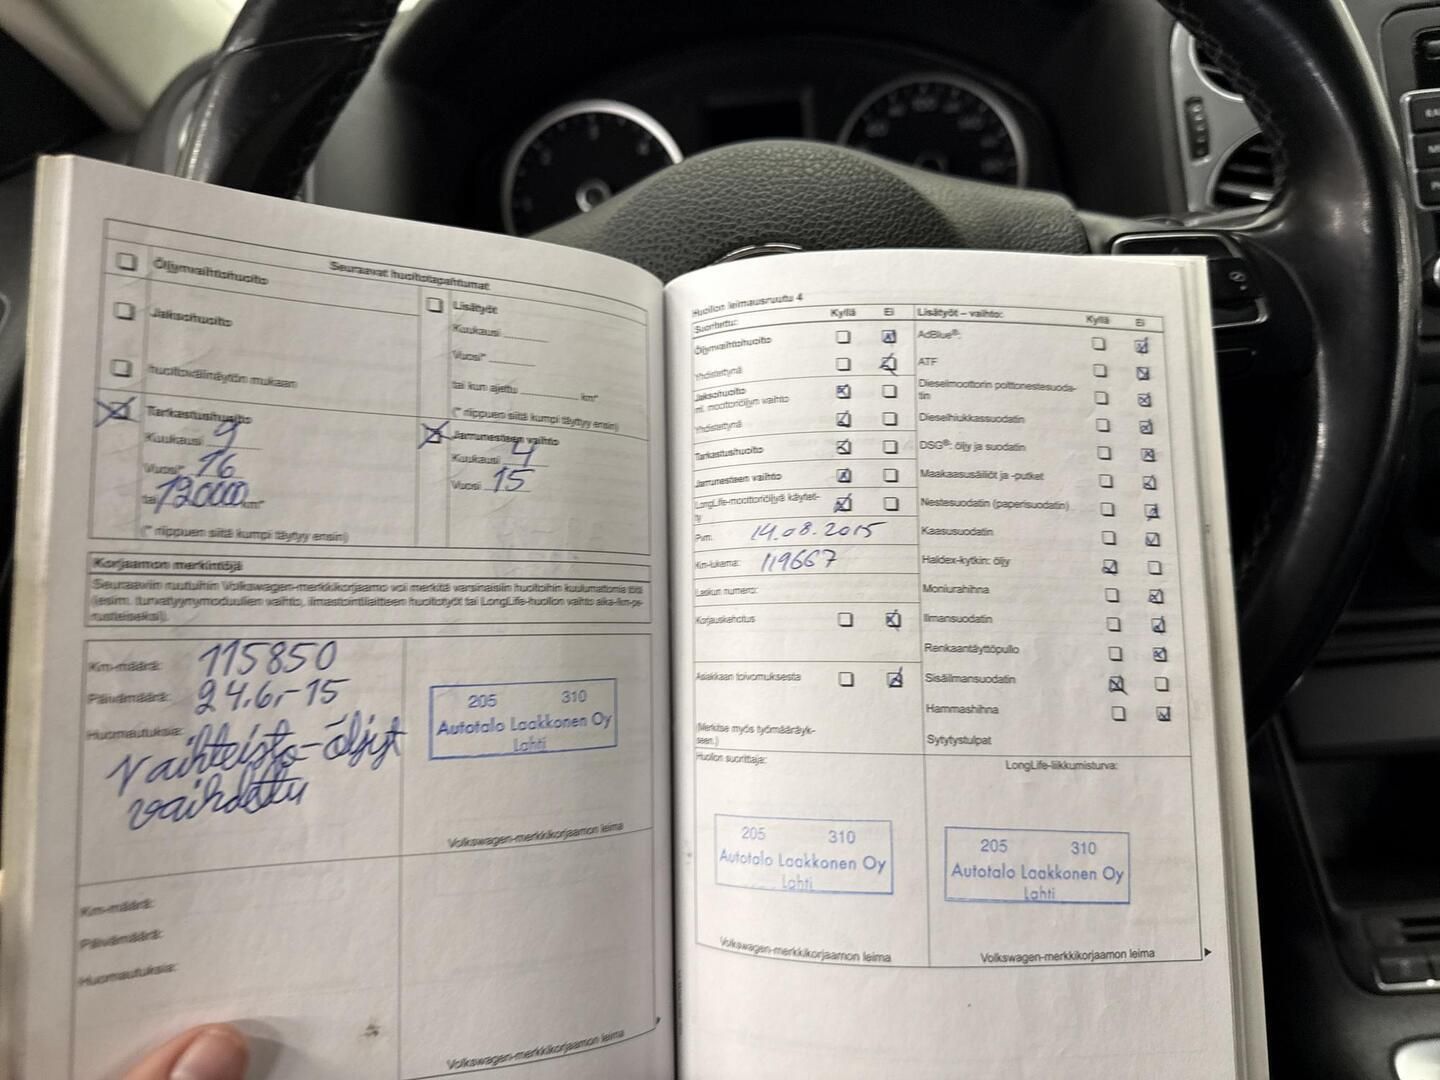 Seuraavat huoltotapahtumat
Öljynvaihtohuolto
Jaksohuolto
huoltovälinäytön mukaan
Tarkastushuolto
Kuukausi 9
Vuosi* 16
tai 12000 km*
(* riippuen siitä kumpi täytyy ensin)
Lisätyöt
Kuukausi
Vuosi*
tai kun ajettu km*
(* riippuen siitä kumpi täytyy ensin)
Jarrunesteen vaihto
Kuukausi 4
Vuosi 15
Korjaamon merkintöjä
Seuraaviin ruutuihin Volkswagen-merkkikorjaamo voi merkitä varsinaisiin huoltoihin kuulumattomia töitä
(esim. turvatyynymoduulien vaihto, ilmastointilaitteen huoltotyöt tai LongLife-huollon vaihto aika-/km-pe-
rusteiseksi).
Km-määrä: 115850
Päivämäärä: 24.6.-15
Huomautuksia:
Vaihteisto-öljyt
vaihdettu
205 310
Autotalo Laakkonen Oy
Lahti
Volkswagen-merkkikorjaamon leima
Km-määrä:
Päivämäärä:
Huomautuksia:
Volkswagen-merkkikorjaamon leima
Huollon leimausruutu 4
Suoritettu: Kyllä Ei
Öljynvaihtohuolto
Yhdistettynä
Jaksohuolto
ml. moottoriöljyn vaihto
Yhdistettynä
Tarkastushuolto
Jarrunesteen vaihto
LongLife-moottoriöljyä käytet-
ty
Pvm. 14.08.2015
Km-lukema: 119667
Laskun numero:
Korjauskehotus
Asiakkaan toivomuksesta
(Merkitse myös työmääräyk-
seen.)
Huollon suorittaja:
205 310
Autotalo Laakkonen Oy
Lahti
Volkswagen-merkkikorjaamon leima
Lisätyöt – vaihto: Kyllä Ei
AdBlue®:
ATF
Dieselmoottorin polttonestesuoda-
tin
Dieselhiukkassuodatin
DSG®: öljy ja suodatin
Maakaasusäiliöt ja -putket
Nestesuodatin (paperisuodatin)
Kaasusuodatin
Haldex-kytkin: öljy
Moniurahihna
Ilmansuodatin
Renkaantäyttöpullo
Sisäilmansuodatin
Hammashihna
Sytytystulpat
LongLife-liikkumisturva:
205 310
Autotalo Laakkonen Oy
Lahti
Volkswagen-merkkikorjaamon leima